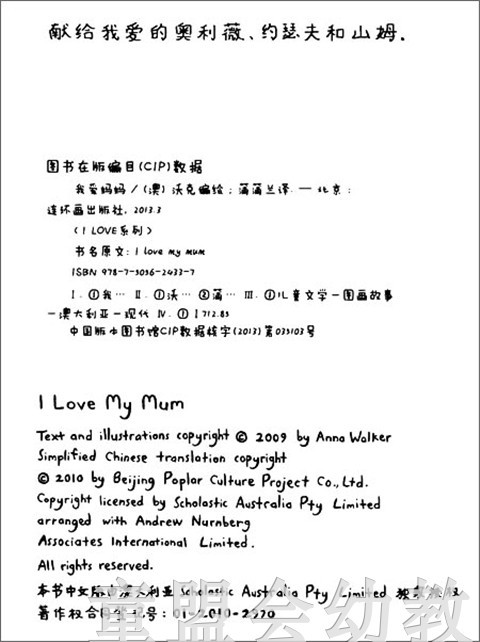 献给我爱的奥利薇、约瑟夫和山姆.
图书在版编目(CIP)数据
我爱妈妈/(澳)沃克编绘；蒲蒲兰译.—北京：
连环画出版社, 2013.3
(I LOVE系列)
书名原文: I love my mum
ISBN 978-7-5056-2433-7
I.①我… II.①沃… ②蒲… III.①儿童文学-图画故事
-澳大利亚-现代 IV.①I712.85
中国版本图书馆CIP数据核字(2013)第035103号
I Love My Mum
Text and illustrations copyright © 2009 by Anna Walker
Simplified Chinese translation copyright
© 2010 by Beijing Poplar Culture Project Co., Ltd.
Copyright licensed by Scholastic Australia Pty Limited
arranged with Andrew Nurnberg
Associates International Limited.
All rights reserved.
本书中文版由澳大利亚Scholastic Australia Pty Limited 授权
著作权合同登记号: 01-2010-2970
童盟会幼教